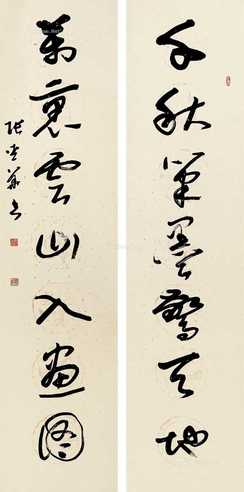 千秋笔墨惊天地
万里云山入画图